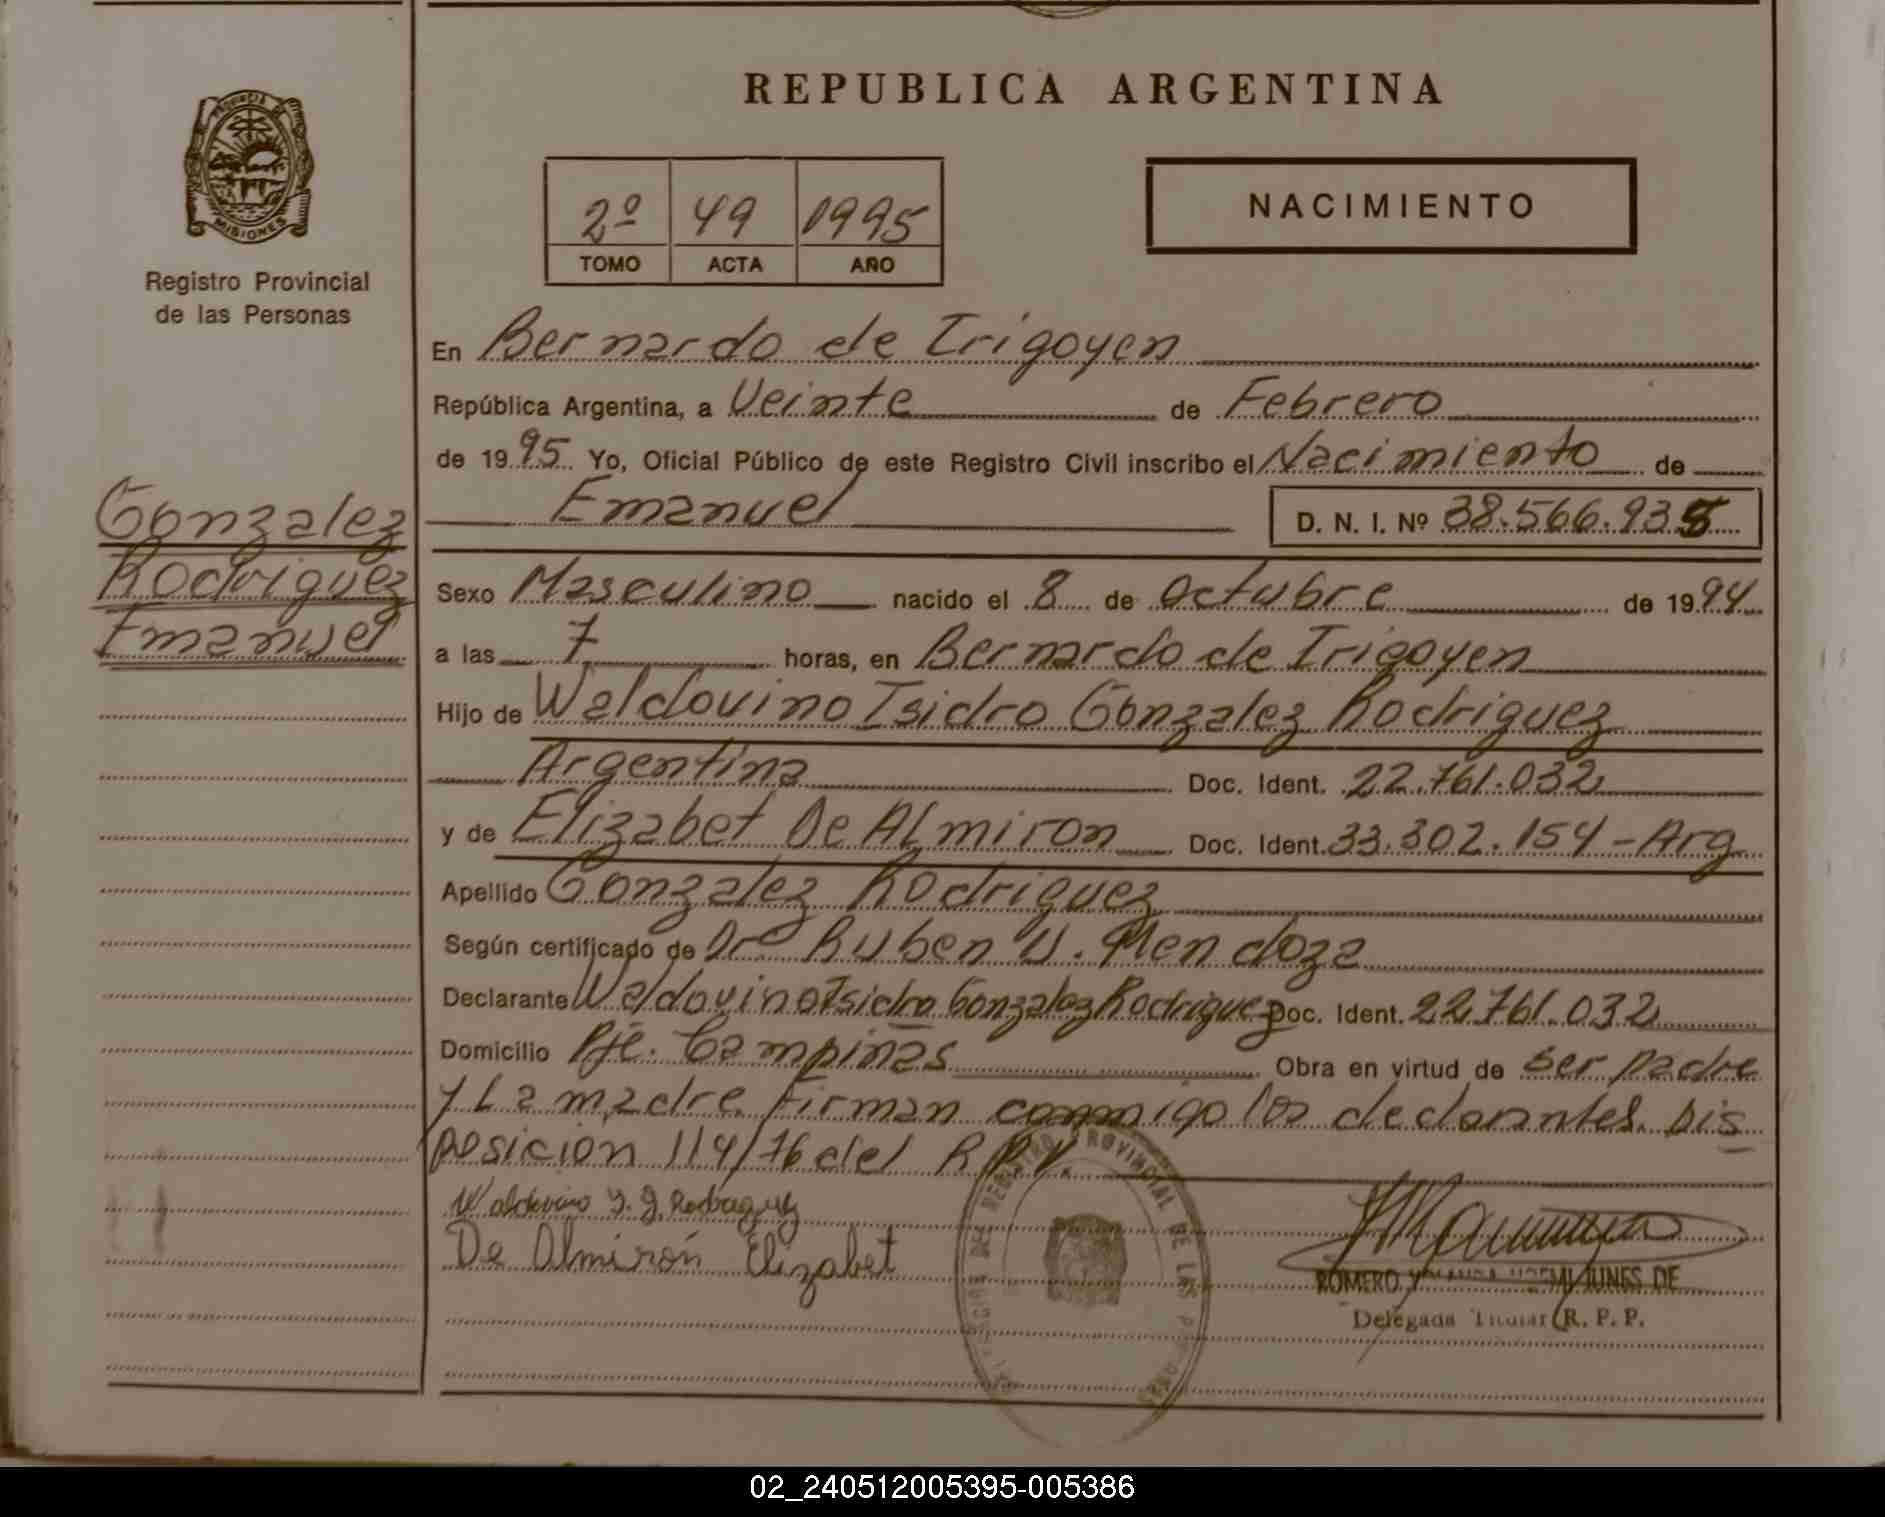 REPUBLICA ARGENTINA
PROVINCIA DE
MISIONES
Registro Provincial
de las Personas
2º 49 1995
TOMO ACTA AÑO
NACIMIENTO
En Bernardo de Irigoyen
República Argentina, a Veinte de Febrero
de 1995 Yo, Oficial Público de este Registro Civil inscribo el Nacimiento de
Emanuel D. N. I. Nº 38.566.935
Gonzalez
Rodriguez
Emanuel
Sexo Masculino nacido el 8 de Octubre de 1994
a las 7 horas, en Bernardo de Irigoyen
Hijo de Waldovino Isidro Gonzalez Rodriguez
Argentina Doc. Ident. 22.761.032
y de Elizabet De Almiron Doc. Ident. 33.302.154 - Arg
Apellido Gonzalez Rodriguez
Según certificado de Dr. Ruben U. Mendoza
Declarante Waldovino Isidro Gonzalez Rodriguez Doc. Ident. 22.761.032
Domicilio Pje. Campiñas Obra en virtud de ser padre
y La madre Firman conmigo los declarantes. Dis
posicion 114/76 del R.P.
Waldovino I. G. Rodriguez
De Almirón Elizabet
REGISTRO PROVINCIAL DE LAS PERSONAS
ROMERO DE
Delegada Titular R. P. P.
02_240512005395-005386